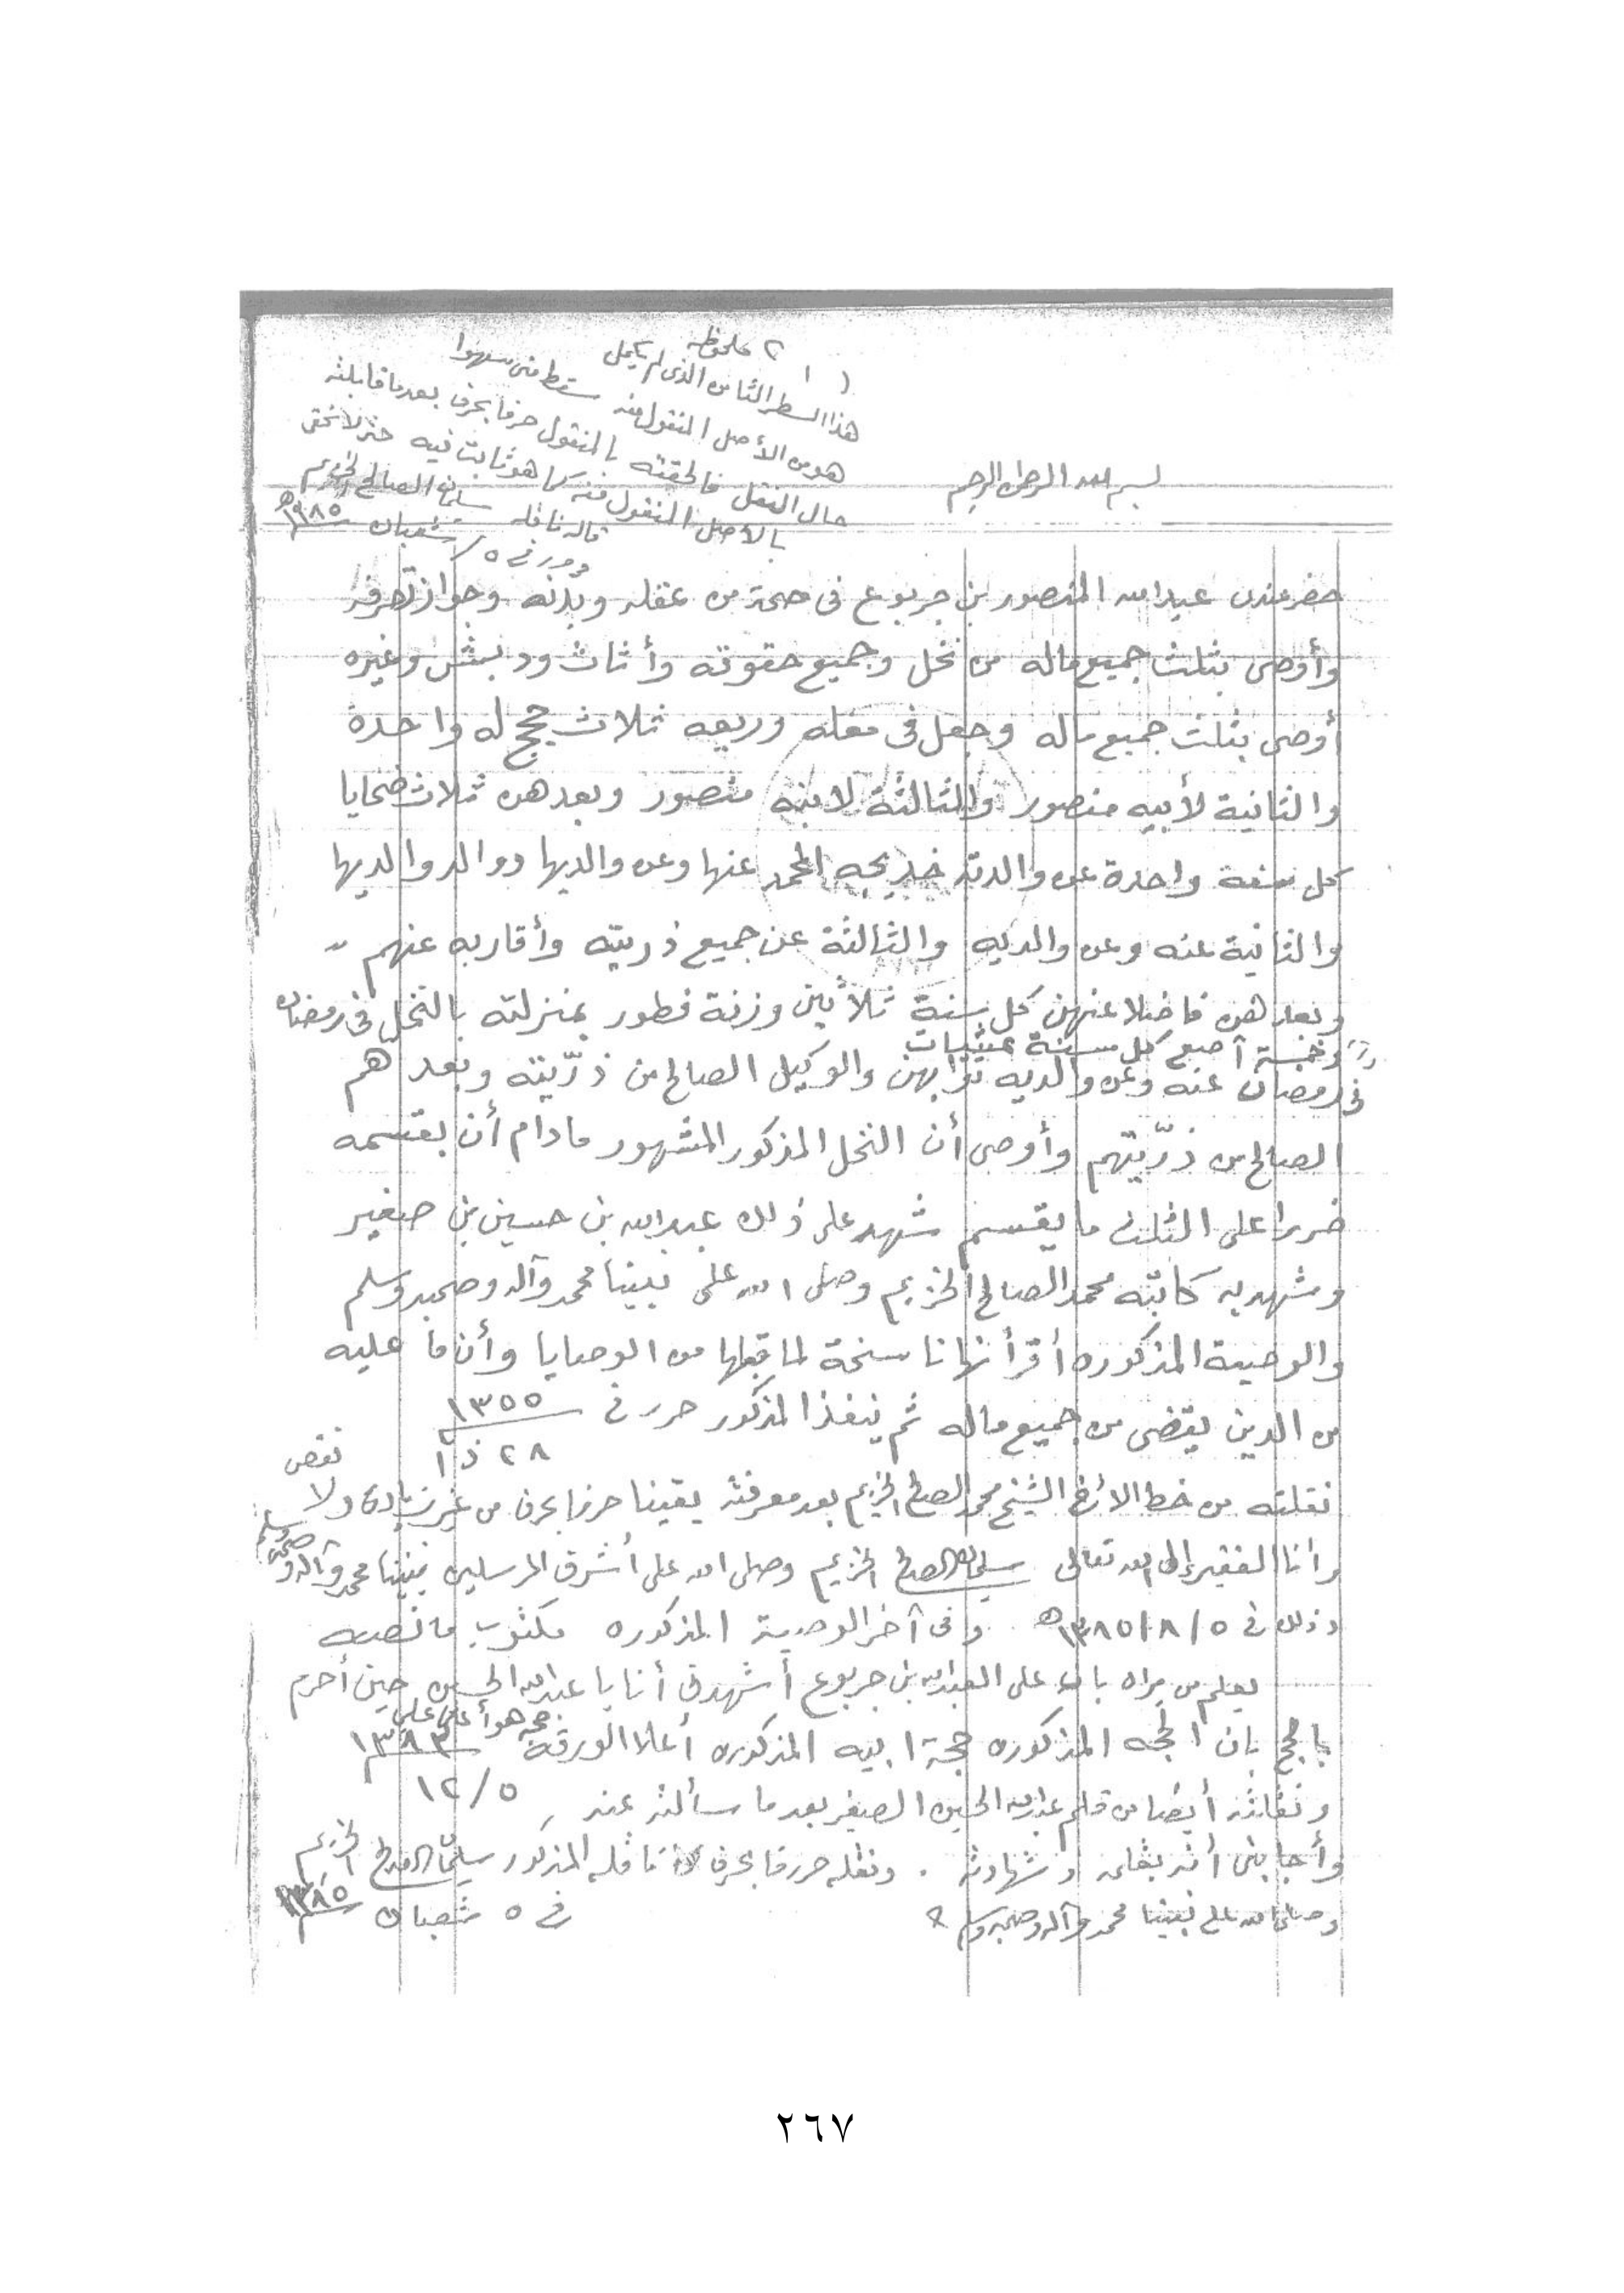 ٢ ملحوظه
( ١
هذا السطر الثامن الذي لم يكمل
هو من الأصل المنقول منه سقط مني سهوا
حال النقل فألحقته بالمنقول حرفا بحرف بعدما قابلته
بالأصل المنقول منه كما هو ثابت فيه حتى لا يخفى
قاله ناقله سليمان الصالح الخزيم
وحرر في ٥/ شعبان ١٣٨٥هـ
بسم الله الرحمن الرحيم
حضر عندي عبدالله المنصور بن جربوع في صحة من عقله وبدنه وجواز تصرفه
وأوصى بثلث جميع ماله من نخل وجميع حقوقه وأثاث ودبش وغيره
أوصى بثلث جميع ماله وجعل في مغله وريعه ثلاث حجج له واحدة
والثانية لأبيه منصور والثالثة لابنه منصور وبعدهن ثلاث ضحايا
كل سنة واحدة عن والدته خديجه المحمد عنها وعن والديها ووالد والديها
والثانية عنه وعن والديه والثالثة عن جميع ذريته وأقاربه عنهم
وبعدهن فاضلا عنهن كل سنة ثلاثين وزنة فطور بمنزلته بالنخل في رمضان
وخمسة آصع كل سنة عشيات
في رمضان عنه وعن والديه ثوابهن والوكيل الصالح من ذرّيته وبعدهم
الصالح من ذرّيّتهم وأوصى أن النخل المذكور المشهور مادام أن بقسمه
ضررا على الثلث ما يقسم شهد على ذلك عبدالله بن حسين بن صغير
وشهد به كاتبه محمد الصالح الخزيم وصلى الله على نبينا محمد وآله وصحبه وسلم
والوصية المذكوره أقر أنها ناسخة لما قبلها من الوصايا وأن ما عليه
من الدين يقضى من جميع ماله ثم ينفذ المذكور حرر في ١٣٥٥
٢٨ ذ ١
نقلته من خط الأخ الشيخ محمد الصالح الخزيم بعد معرفته يقينا حرفا بحرف من غير زيادة ولا نقص
وأنا الفقير إلى الله تعالى سليمان الصالح الخزيم وصلى الله على أشرف المرسلين نبينا محمد وآله وصحبه وسلم
وذلك في ٥/٨/١٣٨٥هـ وفي آخر الوصية المذكوره مكتوب ما نصه
يعلم من يراه بان علي العبدالله بن جربوع أشهدني أنا يا عبدالله الحسين حين أحرم
بالحج بان الحجه المذكوره حجة ابيه المذكوره أعلا الورقة حجه هو أعلاه علي ١٣٨٣
٥/١٢
ونقلته أيضا من قلم عبدالله الحسين الصغير بعد ما سألته عنه
وأجابني أنه بقلمه وشهادته . ونقله حرفا بحرف ناقله المذكور سليمان الصالح الخزيم
وصلى الله على نبينا محمد وآله وصحبه وسلم في ٥ شعبان ١٣٨٥
٢٦٧